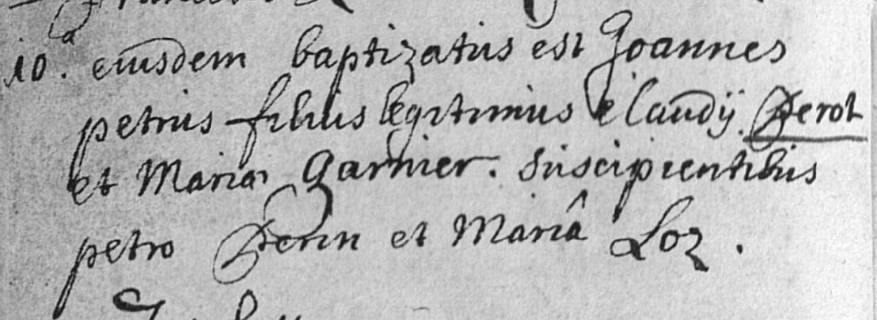 10.a eiusdem baptizatus est Joannes
petrus filius legitimus Claudij Perot
et Maria Garnier. Suscipientibus
petro Perin et Mariâ Loz.